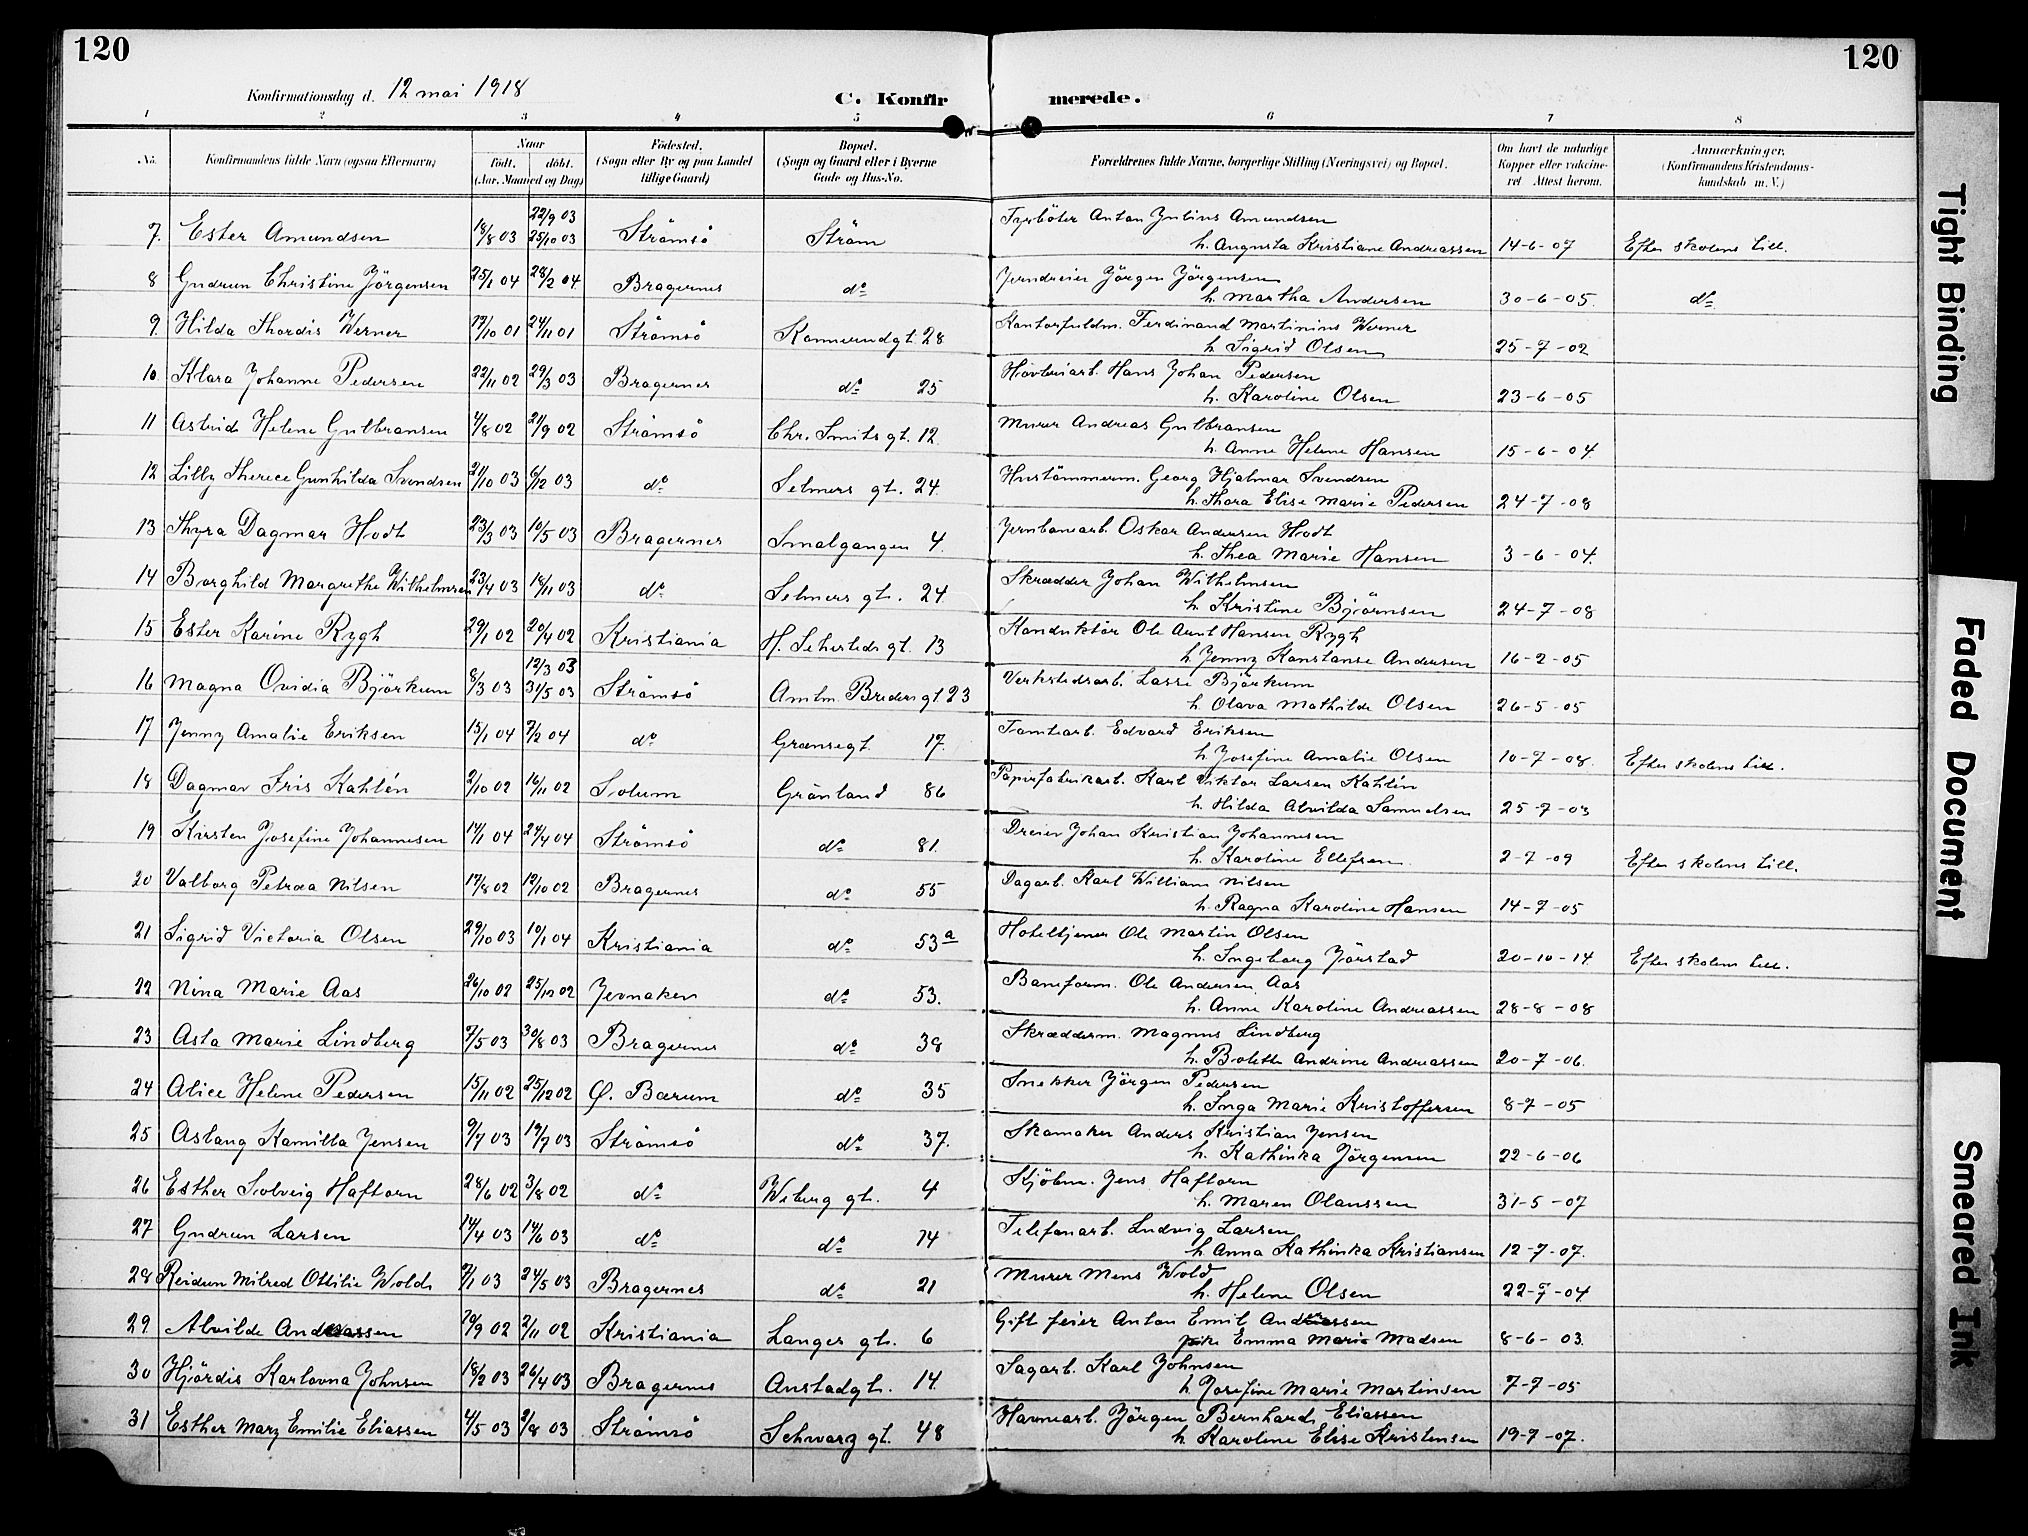 120
120
Konfirmationsdag d. 12 mai 1918
C. Konfirmerede.
1 2 3 4 5 6 7 8
No. Konfirmandens fulde Navn (ogsaa Efternavn) Naar født. døbt. (Aar, Maaned og Dag) Fødested. (Sogn eller By og paa Landet tillige Gaard) Bopæl. (Sogn og Gaard eller i Byerne Gade og Hus-No. Forældrenes fulde Navne, borgerlige Stilling (Næringsvei) og Bopæl. Om havt de naturlige Kopper eller vaccineret. Attest herom. Anmærkninger, (Konfirmandens Kristendomskundskab m. V.)
22/9 03 Fyrbøter Anton Julius Amundsen
7. Ester Amundsen 18/8 03 25/10 03 Strömsö Ström h. Augusta Kristiane Andreassen 14-6-07 Efter skolens till.
8 Gudrun Christine Jörgensen 25/1 04 28/2 04 Bragernes do Jerndreier Jörgen Jörgensen
h. Martha Andersen 30-6-05. do
9. Hilda Thordis Werner 19/10 01 24/11 01 Strömsö Konnerudgt. 28 Kontorfuldm. Ferdinand Martinius Werner
h. Sigrid Olsen 25-7-02
10 Klara Johanne Pedersen 22/11 02 29/3 03 Bragernes do 25 Høvleriarb. Hans Johan Pedersen
h. Karoline Olsen 23-6-05
11 Astrid Helene Gulbransen 4/8 02 21/9 02 Strömsö Chr. Smits gt. 12. Murer Andreas Gulbransen
h. Anne Helene Hansen 15-6-04
12 Lilly Therece Gunhilda Svendsen 21/10 03 6/12 03 do Selmers gt. 24. Hustömmerm. Georg Hjalmar Svendsen
h. Thora Elise Marie Pedersen 24-7-08
13 Thyra Dagmar Hodt 23/3 03 10/5 03 Bragernes Smalgangen 4. Jernbanearb. Oskar Andersen Hodt
h. Thea Marie Hansen 3-6-04.
14 Borghild Margrethe Wilhelmsen 23/4 03 18/11 03 do Selmers gt. 24 Skrædder Johan Wilhelmsen
h. Kristine Björnsen 24-7-08
15 Ester Karine Rygh 29/1 02 20/4 02 Kristiania H. Sehesteds gt. 13 Konduktör Ole Aunt Hansen Rygh
h. Jenny Konstanse Andersen 16-2-05
12/3 03
16 Magna Ovidia Björkum 8/3 03 31/5 03 Strömsö Amtm. Breders gt 23 Verkstedsarb. Lasse Björkum
h. Olava Mathilde Olsen 26-5-05
17 Jenny Amalie Eriksen 15/1 04 7/2 04 do Grænsegt. 17. Tomtearb. Edvard Eriksen
h. Josefine Amalie Olsen 10-7-08. Efter skolens till.
18 Dagmar Iris Kahlén 2/10 02 16/11 02 Solum Grönland 86 Papirfabrikarb. Karl Viktor Larsen Kahlén
h. Hilda Alvilda Samuelsen 25-7-03
19 Kirsten Josefine Johannesen 14/1 04 24/4 04 Strömsö do 81. Dreier Johan Kristian Johannesen
h. Karoline Ellefsen 2-7-09 Efter skolens till.
20 Valborg Petræa Nilsen 17/8 02 12/10 02 Bragernes do 55 Dagarb. Karl William Nilsen
h. Ragna Karoline Hansen 14-7-05
21 Sigrid Victoria Olsen 29/10 03 10/1 04 Kristiania do 53a Hoteltjener Ole Martin Olsen
h. Ingeborg Jörstad 20-10-14 Efter skolens till.
22 Nina Marie Aas 26/10 02 25/12 02 Jevnaker do 53. Baneform. Ole Andersen Aas
h. Anne Karoline Andreassen 28-8-08
23 Asta Marie Lindberg 7/5 03 30/8 03 Bragernes do 38 Skrædderm. Magnus Lindberg
h. Bolette Andrine Andreassen 20-7-06.
24 Alice Helene Pedersen 15/11 02 25/12 02 Ø. Bærum do 35 Snekker Jörgen Pedersen
h. Inga Marie Kristoffersen 8-7-05
25 Aslaug Kamilla Jensen 9/7 03 19/7 03 Strömsö do 37. Skomaker Anders Kristian Jensen
h. Kathinka Jörgensen 22-6-06
26 Esther Solveig Haftorn 28/6 02 3/8 02 do Wiberg gt. 4 Kjöbm. Jens Haftorn
h. Maren Olaussen 31-5-07
27 Gudrun Larsen 14/4 03 14/6 03 do do 14 Telefonarb. Ludvig Larsen
h. Anna Kathinka Kristiansen 12-7-07.
28 Reidun Milred Ottilie Wold 7/1 03 24/5 03 Bragernes do 21 Murer Mons Wold
h. Helene Olsen 22-7-04
29 Alvilde Andreassen 19/9 02 2/11 02 Kristiania Langes gt. 6 Gift feier Anton Emil Andreassen
pike Emma Marie Madsen 8-6-03.
30 Hjördis Karlovna Johnsen 18/2 03 26/4 03 Bragernes Anstadgt. 14. Sagarb. Karl Johnsen
h. Josefine Marie Martinsen 7-7-05
31 Esther Mary Emilie Eliassen 4/5 03 2/8 03 Strömsö Schwarz gt. 48 Havnearb. Jörgen Bernhard Eliassen
h. Karoline Elise Kristensen 19-7-07.
Tight Binding
Faded Document
Smeared Ink